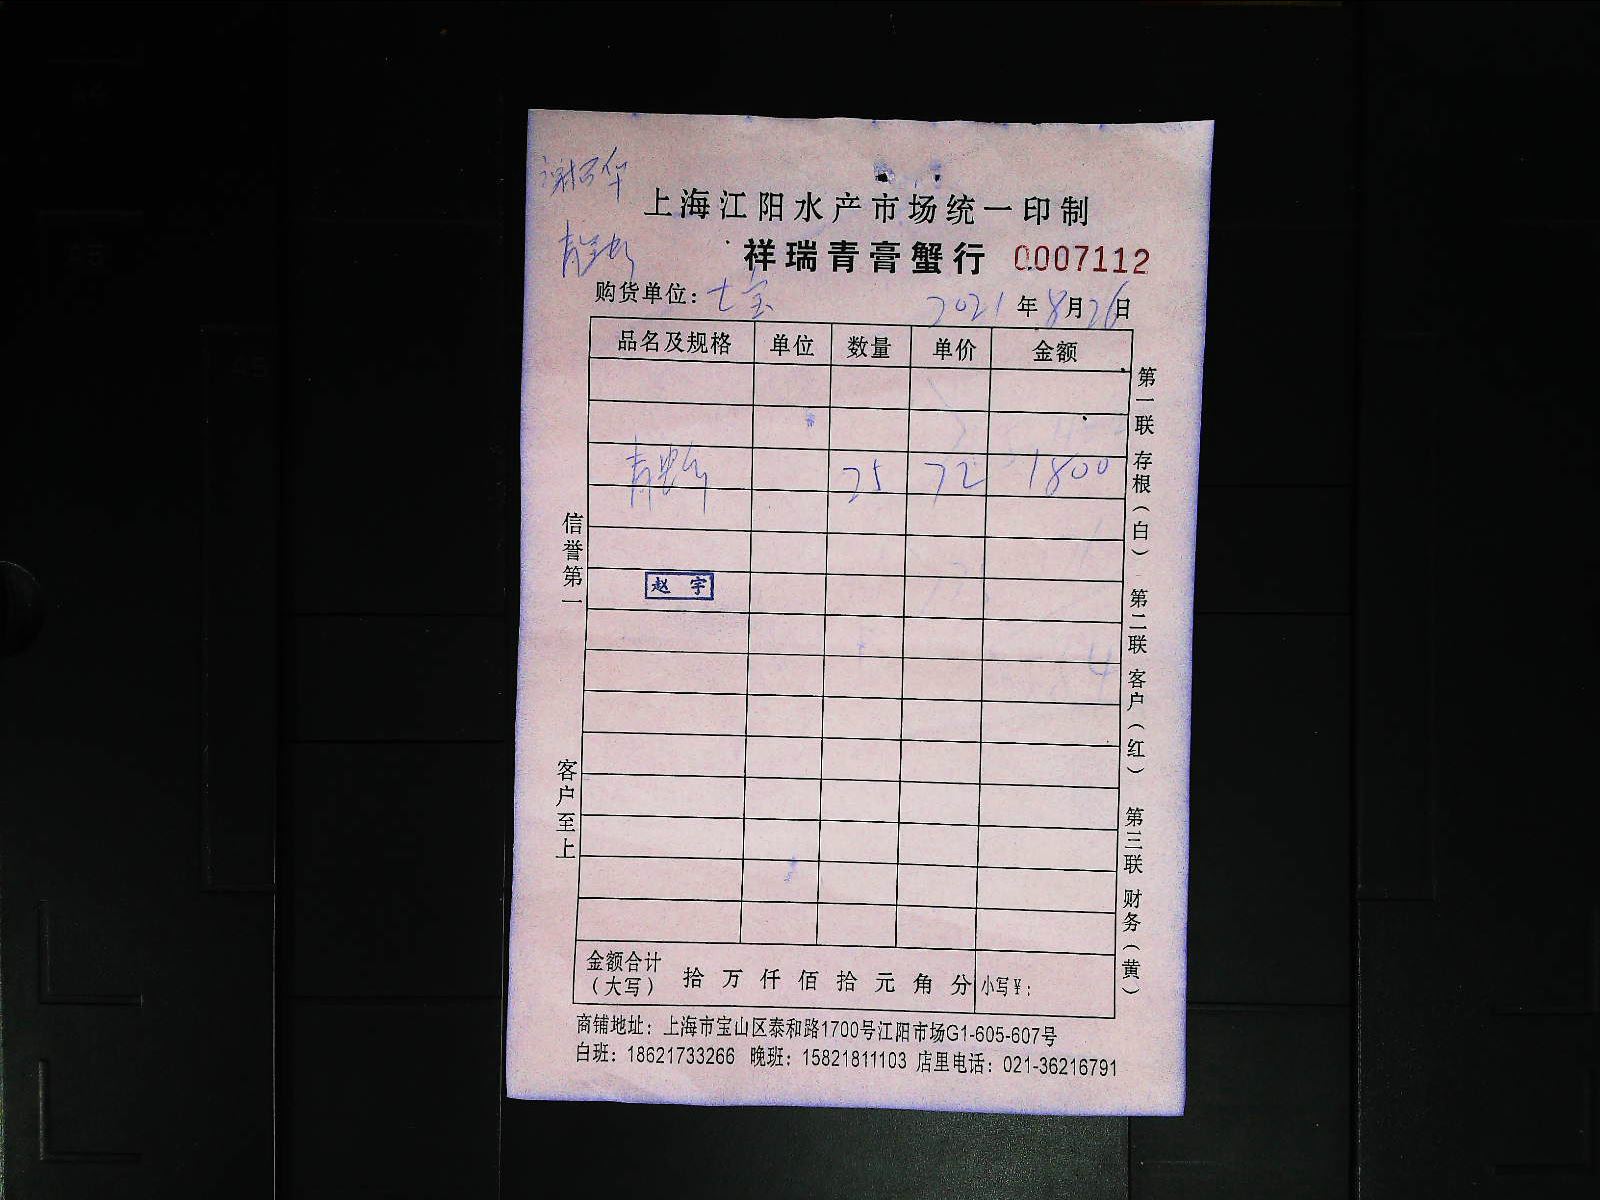 上海江阳水产市场统一印制
祥瑞青膏蟹行 0007112
购货单位：七宝 2021年8月26日
品名及规格 单位 数量 单价 金额
25 72 1800
赵宇
金额合计（大写） 拾 万 仟 佰 拾 元 角 分 小写￥：
商铺地址：上海市宝山区泰和路1700号江阳市场G1-605-607号
白班：18621733266 晚班：15821811103 店里电话：021-36216791
信誉第一
客户至上
第一联 存根（白） 第二联 客户（红） 第三联 财务（黄）